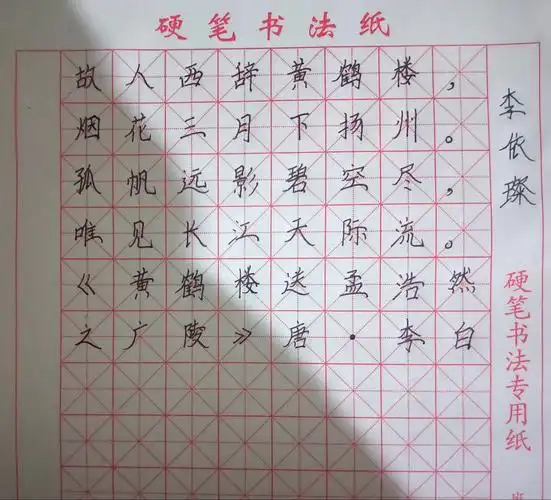 硬笔书法纸
故人西辞黄鹤楼，
烟花三月下扬州。
孤帆远影碧空尽，
唯见长江天际流。
《黄鹤楼送孟浩然
之广陵》唐·李白
李依璨
硬笔书法专用纸